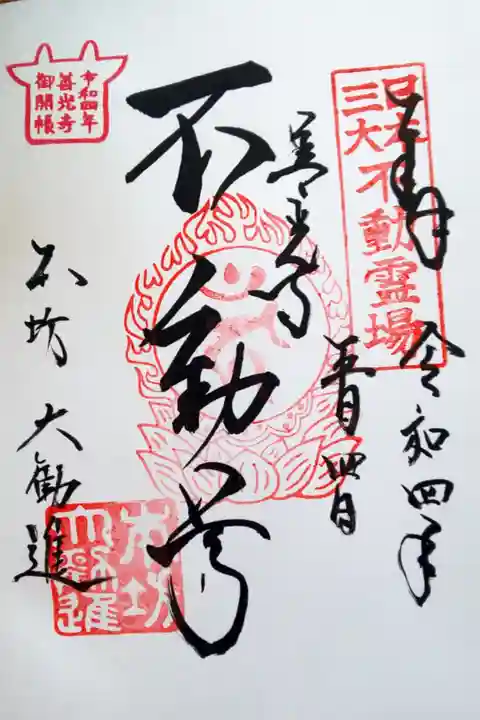 日本
三大不動霊場
奉拝
令和四年
五月四日
善光寺
不動尊
本坊 大勧進
令和四年
善光寺
御開帳
本坊
大勧進